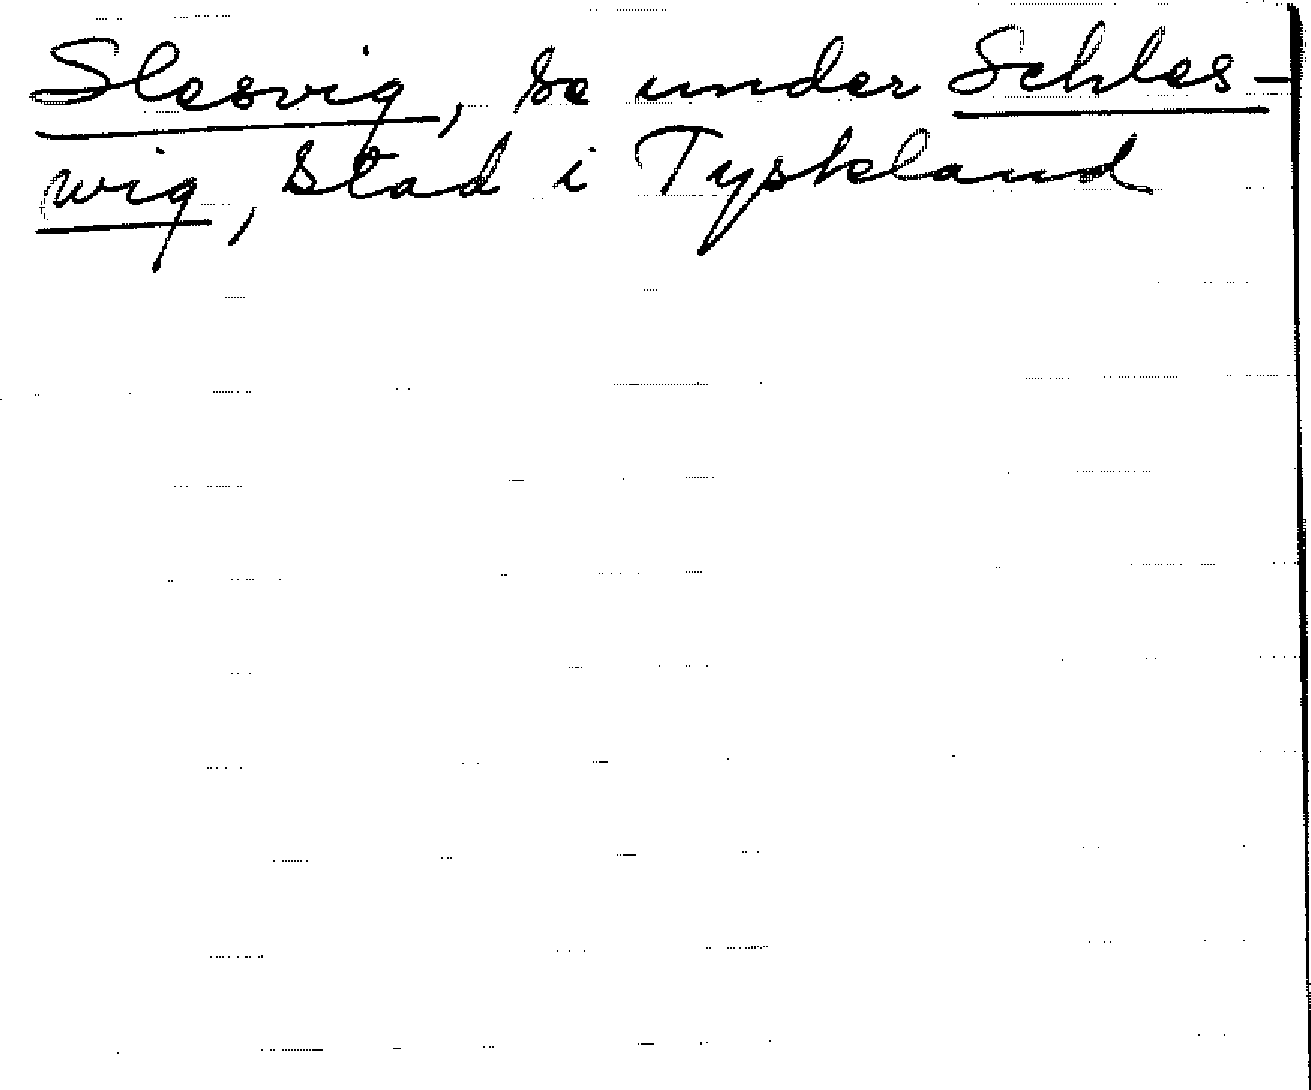 Slesvig, se under Schles-
wig, stad i Tyskland